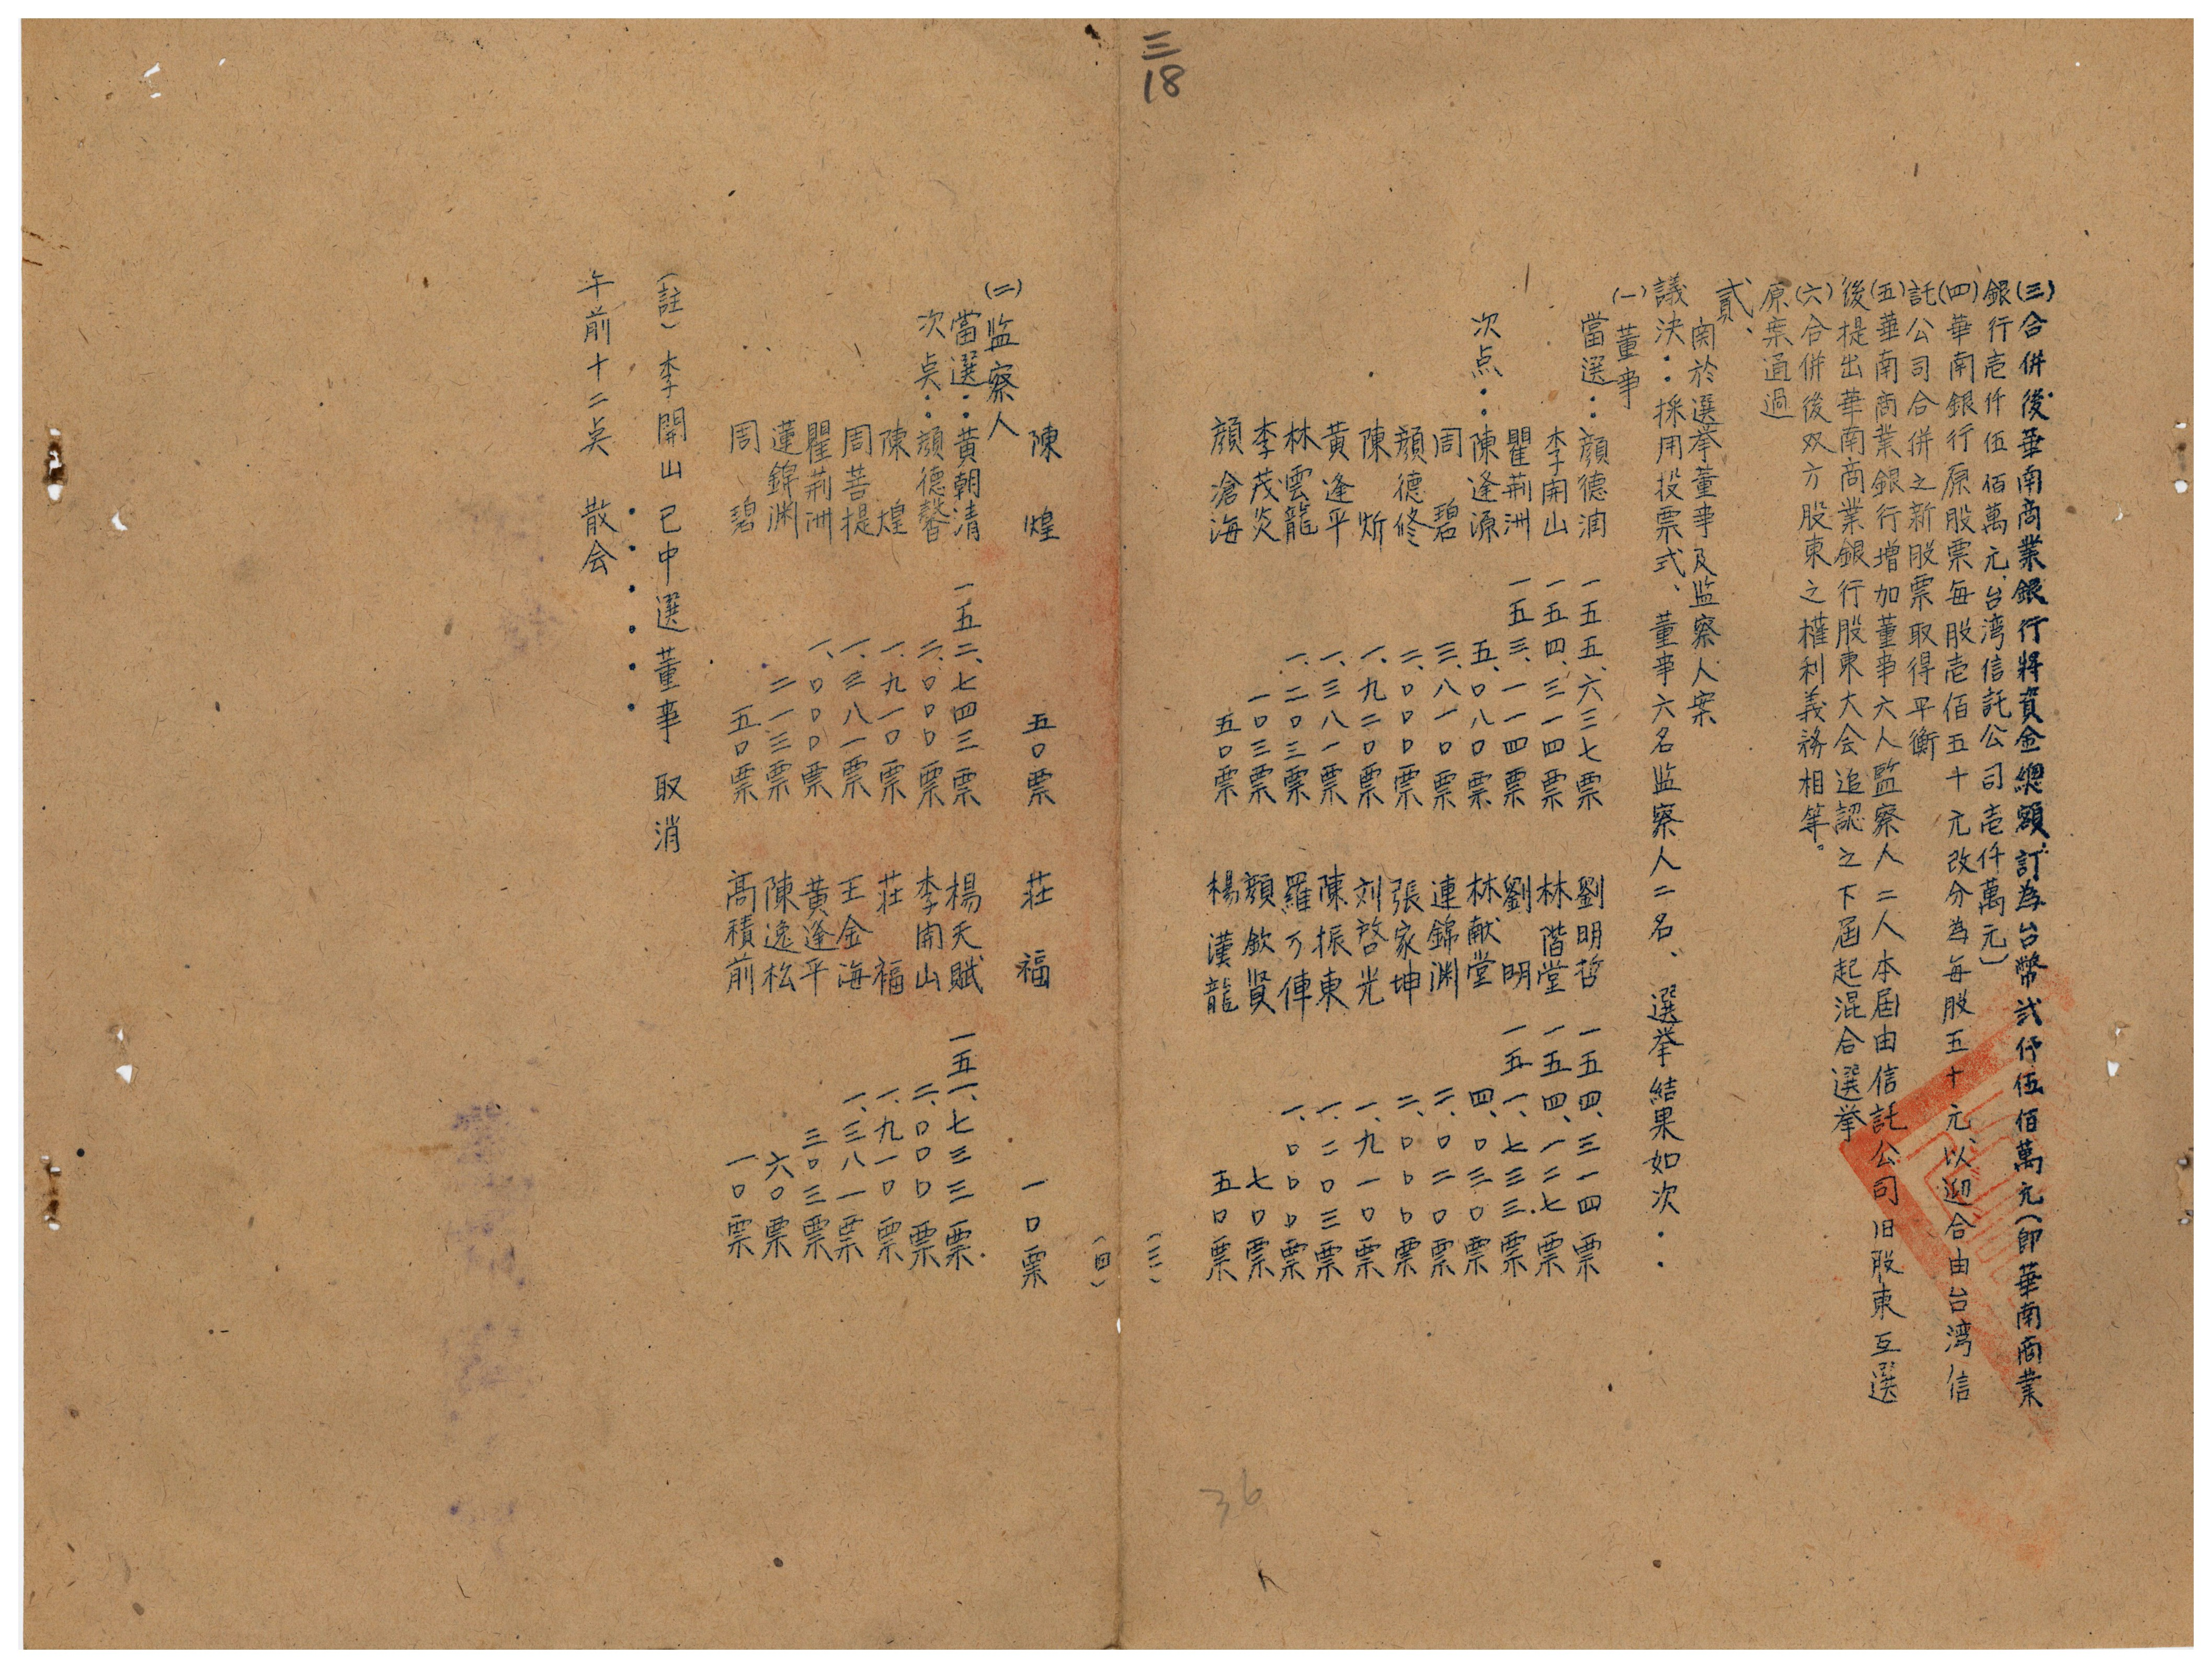 三
18
(三)合併後華南商業銀行將資金總額訂為台幣弍仟伍佰萬元(即華南商業
銀行壱仟伍佰萬元、台湾信託公司壱仟萬元)
(四)華南銀行原股票每股壱佰五十元改分為每股五十元、以迎合由台湾信
託公司合併之新股票取得平衡
(五)華南商業銀行增加董事六人監察人二人本屆由信託公司旧股東互選
後提出華南商業銀行股東大会追認之下屆起混合選挙
(六)合併後双方股東之權利義務相等。
原案通過
貳、
関於選挙董事及監察人案
議決:採用投票式、董事六名監察人二名、選挙結果如次:
(一)董事
當選:顔德潤 一五五、六三七票 劉明哲 一五四、三一四票
李開山 一五四、三一四票 林階堂 一五四、一二七票
瞿荊洲 一五三、一一四票 劉明 一五一、七三三票
次点:陳逢源 五、〇八〇票 林献堂 四、〇三〇票
周碧 三、八一〇票 連錦渊 二、〇二〇票
顔德修 二、〇〇〇票 張家坤 二、〇〇〇票
陳炘 一、九二〇票 刘啓光 一、九一〇票
黃逢平 一、三八一票 陳振東 一、二〇三票
林雲龍 一、二〇三票 羅万俥 一、〇〇〇票
李茂炎 一〇三票 顔欽賢 七〇票
顔滄海 五〇票 楊漢龍 五〇票
(三)
(四)
陳煌 五〇票 莊福 一〇票
(二)监察人
當選:黃朝清 一五二、七四三票 楊天賦 一五一、七三三票
次点:顔德馨 二、〇〇〇票 李開山 二、〇〇〇票
陳煌 一、九一〇票 莊福 一、九一〇票
周菩提 一、三八一票 王金海 一、三八一票
瞿荊洲 一、〇〇〇票 黃逢平 三〇三票
蓮錦渊 二一三票 陳逸松 六〇票
周碧 五〇票 高積前 一〇票
(註)李開山已中選董事 取消
午前十二点 散会
36